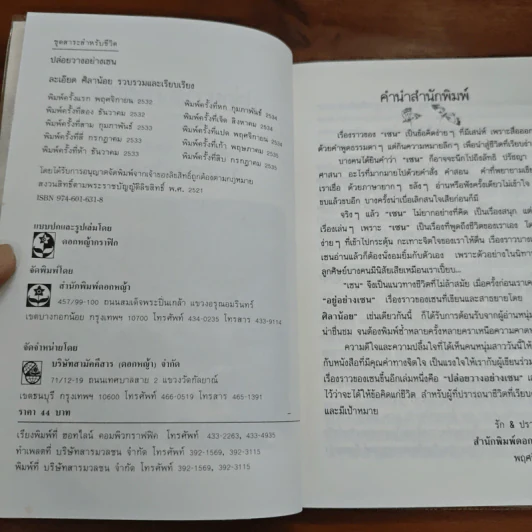 ชุดสาระสำหรับชีวิต
ปล่อยวางอย่างเซน
ละเอียด ศิลาน้อย รวบรวมและเรียบเรียง
พิมพ์ครั้งแรก พฤศจิกายน 2532
พิมพ์ครั้งที่สอง ธันวาคม 2532
พิมพ์ครั้งที่สาม กุมภาพันธ์ 2533
พิมพ์ครั้งที่สี่ กรกฎาคม 2533
พิมพ์ครั้งที่ห้า ธันวาคม 2533
พิมพ์ครั้งที่หก กุมภาพันธ์ 2534
พิมพ์ครั้งที่เจ็ด สิงหาคม 2534
พิมพ์ครั้งที่แปด พฤศจิกายน 2534
พิมพ์ครั้งที่เก้า พฤษภาคม
พิมพ์ครั้งที่สิบ กรกฎาคม
โดยได้รับการอนุญาตจัดพิมพ์จากเจ้าของลิขสิทธิ์ถูกต้องตามกฎหมาย
สงวนสิทธิ์ตามพระราชบัญญัติลิขสิทธิ์ พ.ศ. 2521
ISBN 974-601-631-8
แบบปกและรูปเล่มโดย
ดอกหญ้ากราฟิค
จัดพิมพ์โดย
สำนักพิมพ์ดอกหญ้า
457/99-100 ถนนสมเด็จพระปิ่นเกล้า แขวงอรุณอมรินทร์
เขตบางกอกน้อย กรุงเทพฯ 10700 โทรศัพท์ 434-0235 โทรสาร 433-9114
จัดจำหน่ายโดย
บริษัทสามัคคีสาร (ดอกหญ้า) จำกัด
71/12-19 ถนนเทศบาลสาย 2 แขวงวัดกัลยาณ์
เขตธนบุรี กรุงเทพฯ 10600 โทรศัพท์ 466-0519 โทรสาร 465-1391
ราคา 44 บาท
เรียงพิมพ์ที่ ฮอทไลน์ คอมพิวกราฟฟิค โทรศัพท์ 433-2263, 433-4935
ทำเพลตที่ บริษัทสารมวลชน จำกัด โทรศัพท์ 392-1569, 392-3115
พิมพ์ที่ บริษัทสารมวลชน จำกัด โทรศัพท์ 392-1569, 392-3115
คำนำสำนักพิมพ์
เรื่องราวของ "เซน" เป็นข้อคิดง่ายๆ ที่มีเสน่ห์ เพราะสื่อออก
ด้วยคำพูดธรรมดาๆ แต่กินความหมายลึกๆ เพื่อนำสู่ชีวิตที่เรียบง่าย
บางคนได้ยินคำว่า "เซน" ก็อาจจะนึกไปถึงลัทธิ ปรัชญา
ศาสนา อะไรที่มากมายไปด้วยคำสั่ง คำสอน คำที่พยายามเชื่
เราเชื่อ ด้วยภาษายากๆ ขลังๆ อ่านหรือฟังครั้งเดียวไม่เข้าใจ
ขบแล้วขบอีก บางครั้งน่าเบื่อเลิกสนใจเสียก่อนก็มี
จริงๆ แล้ว "เซน" ไม่ยากอย่างที่คิด เป็นเรื่องสนุก แต่
เรื่องเล่นๆ เพราะ "เซน" เป็นเรื่องที่พูดถึงชีวิตของเราเอง โด
ง่ายๆ ที่เข้าไปกระตุ้น กะเทาะจิตใจของเราให้ตื่น เรื่องราวบาง
เซนอ่านแล้วก็ต้องนั่งอมยิ้มกับตัวเอง เพราะตัวอย่างในนิทาน
ลูกศิษย์บางคนมีนิสัยเสียเหมือนเราเปี๊ยบ...
"เซน" จึงเป็นแนวทางชีวิตที่ไม่ล้าสมัย เมื่อครั้งก่อนเราเค
"อยู่อย่างเซน" เรื่องราวของเซนที่เขียนและสายชายโดย
ศิลาน้อย" เช่นเดียวกันนี้ ก็ได้รับการต้อนรับจากผู้อ่านหนุ่ม
น่าชื่นชม จนต้องพิมพ์ซ้ำหลายครั้งหลายคราเหนือความคาดห
ความดีใจและความปลื้มใจที่ได้เห็นคนหนุ่มสาววันนี้ให้
กับหนังสือที่มีคุณค่าทางจิตใจ เป็นแรงใจให้เรากับผู้เขียนร่วม
เรื่องราวของเซนขึ้นอีกเล่มหนึ่งคือ "ปล่อยวางอย่างเซน" เล่
ไว้ว่าจะได้ให้ข้อคิดแก่ชีวิต สำหรับผู้ที่ปรารถนาชีวิตที่เรียบ
และมีเป้าหมาย
รัก & ปรา
สำนักพิมพ์ดอก
พฤศ